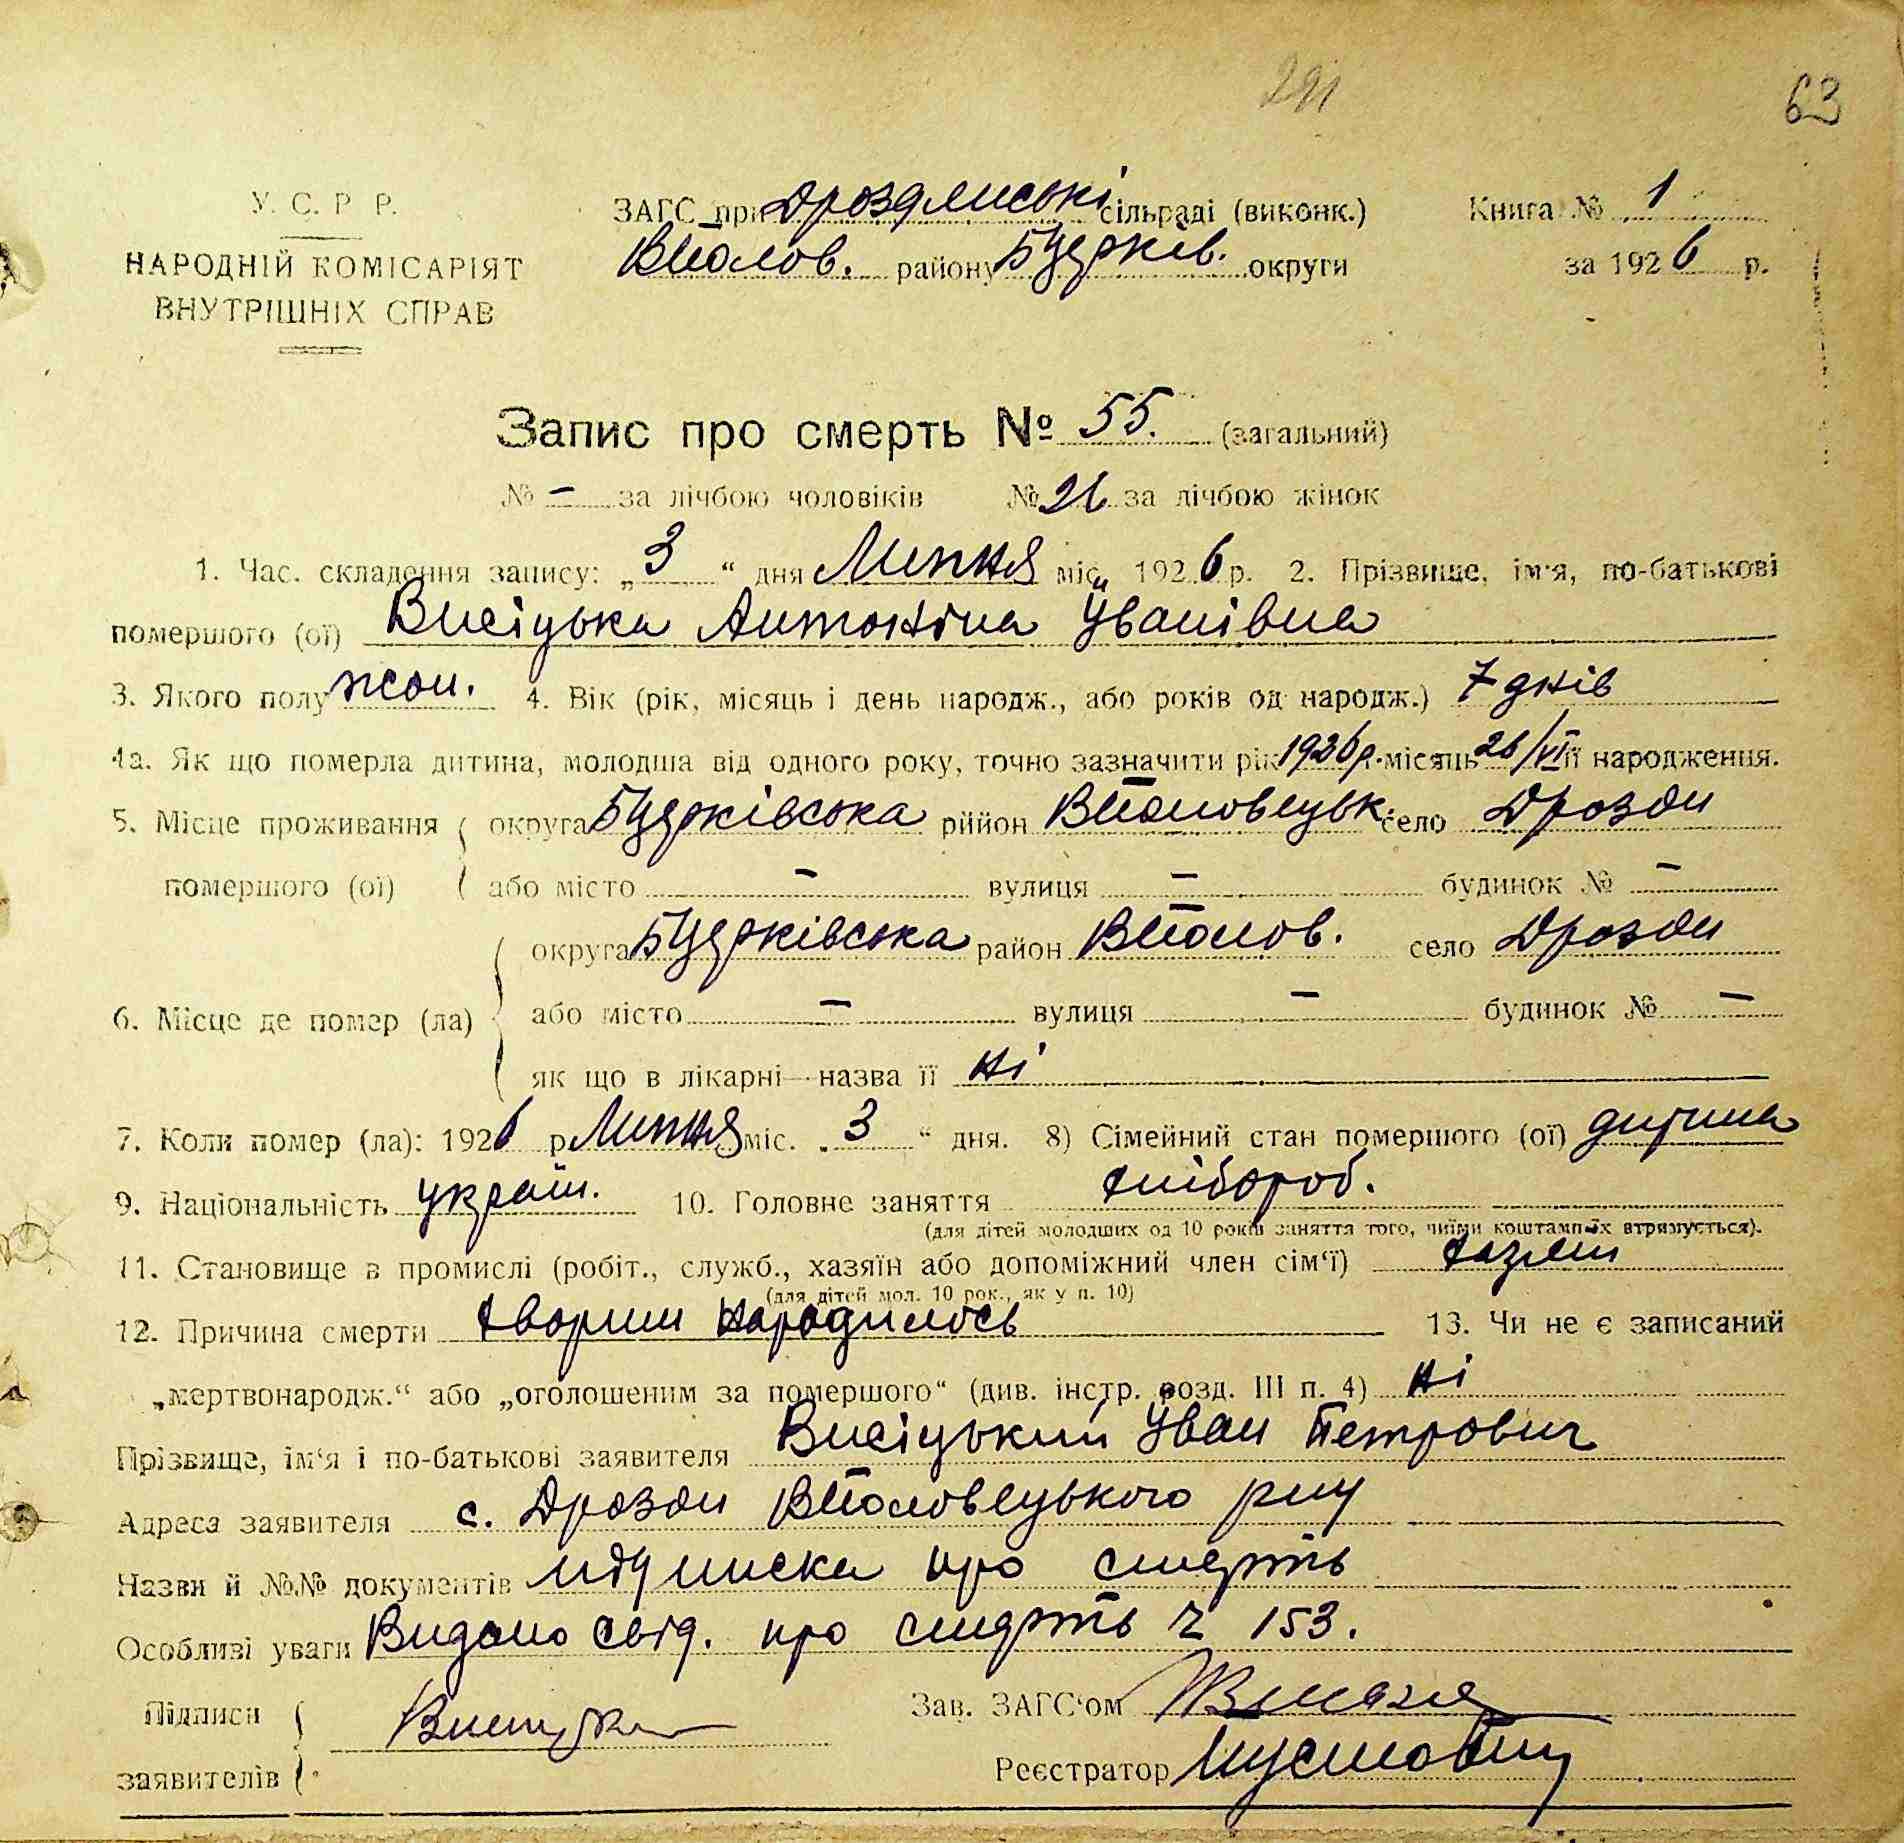 291
63
У. С. Р Р.
НАРОДНІЙ КОМІСАРІЯТ
ВНУТРІШНІХ СПРАВ
ЗАГС при Дроздянські сільраді (виконк.)
Вполов. району Б Церків. округи
Книга № 1
за 1926 р.
Запис про смерть № 55. (загальний)
№ — за лічбою чоловіків № 26 за лічбою жінок
1. Час. складення запису: „ 3 “ дня Липня міс. 1926 р. 2. Прізвище, ім'я, по-батькові
помершого (ої) Висіцька Антоніна Іванівна
3. Якого полу жон. 4. Вік (рік, місяць і день народж., або років од народж.) 7 днів
4а. Як що померла дитина, молодша від одного року, точно зазначити рік 1926 р. місяць 26/VI її народження.
5. Місце проживання округа Б Церківська рййон Вполовецьк. село Дрозди
помершого (ої) або місто — вулиця — будинок № —
округа Б Церківська район Вполов. село Дрозди
6. Місце де помер (ла) або місто — вулиця — будинок № —
як що в лікарні—назва її ні
7. Коли помер (ла): 1926 р Липня міс. „ 3 “ дня. 8) Сімейний стан помершого (ої) дитина
9. Національність україн. 10. Головне заняття хлібороб.
(для дітей молодших од 10 років заняття того, чиїми коштами їх втримується).
11. Становище в промислі (робіт., служб., хазяїн або допоміжний член сім'ї) хазяин
(для дітей мол. 10 рок., як у п. 10)
12. Причина смерти хворим народилось 13. Чи не є записаний
„мертвонародж.“ або „оголошеним за помершого“ (див. інстр. розд. III п. 4) ні
Прізвище, ім'я і по-батькові заявителя Висіцький Іван Петрович
Адреса заявителя с. Дрозди Вполовецького р-ну
Назви й №№ документів підписка про смерть
Особливі уваги Видано свід. про смерть ч 153.
Підписи
заявителів
Зав. ЗАГС'ом
Реєстратор